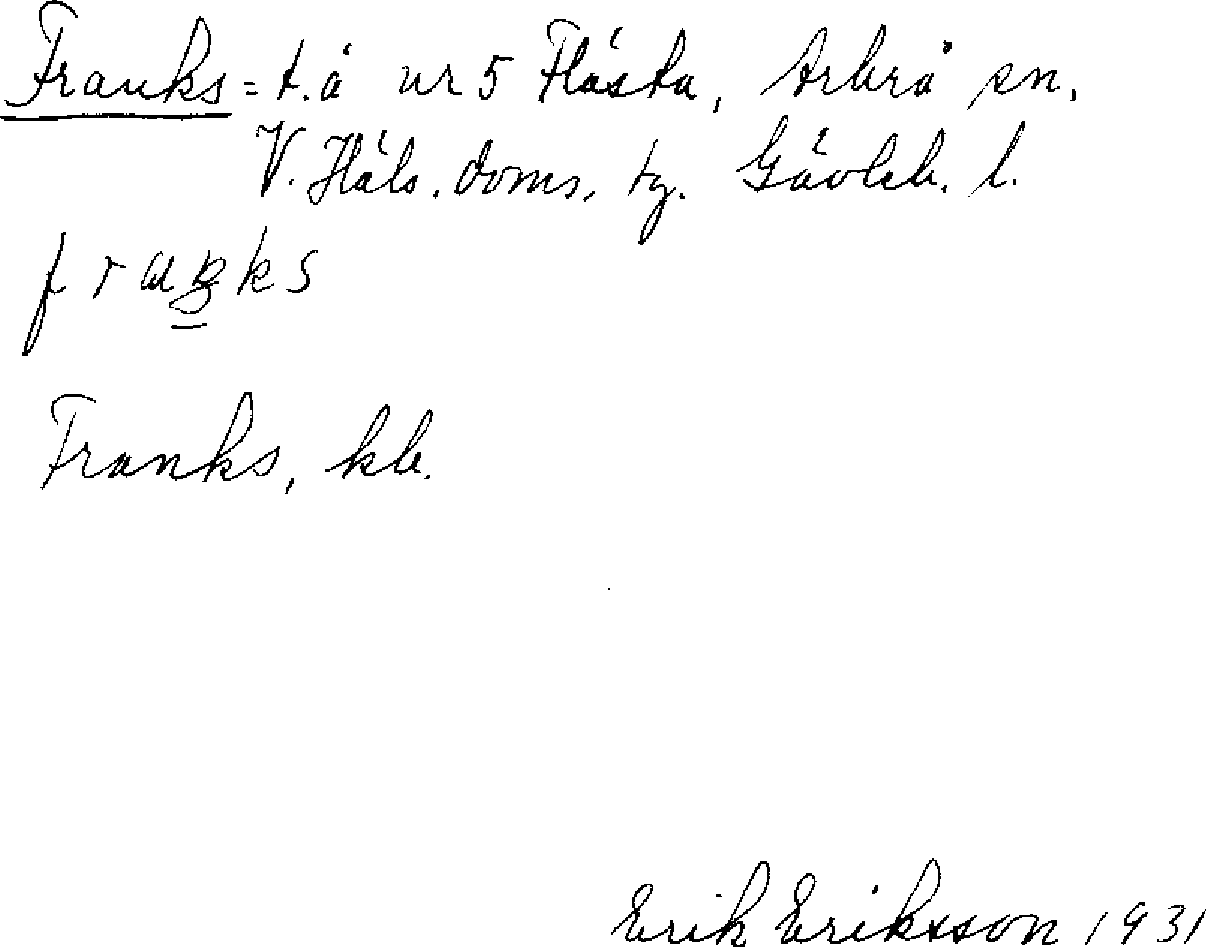 Franks = t. å nr 5 Flästa, Arbrå sn.
V. Häls. doms. tg. Gävleb. l.
Franks, kb.
Erik Eriksson 1931